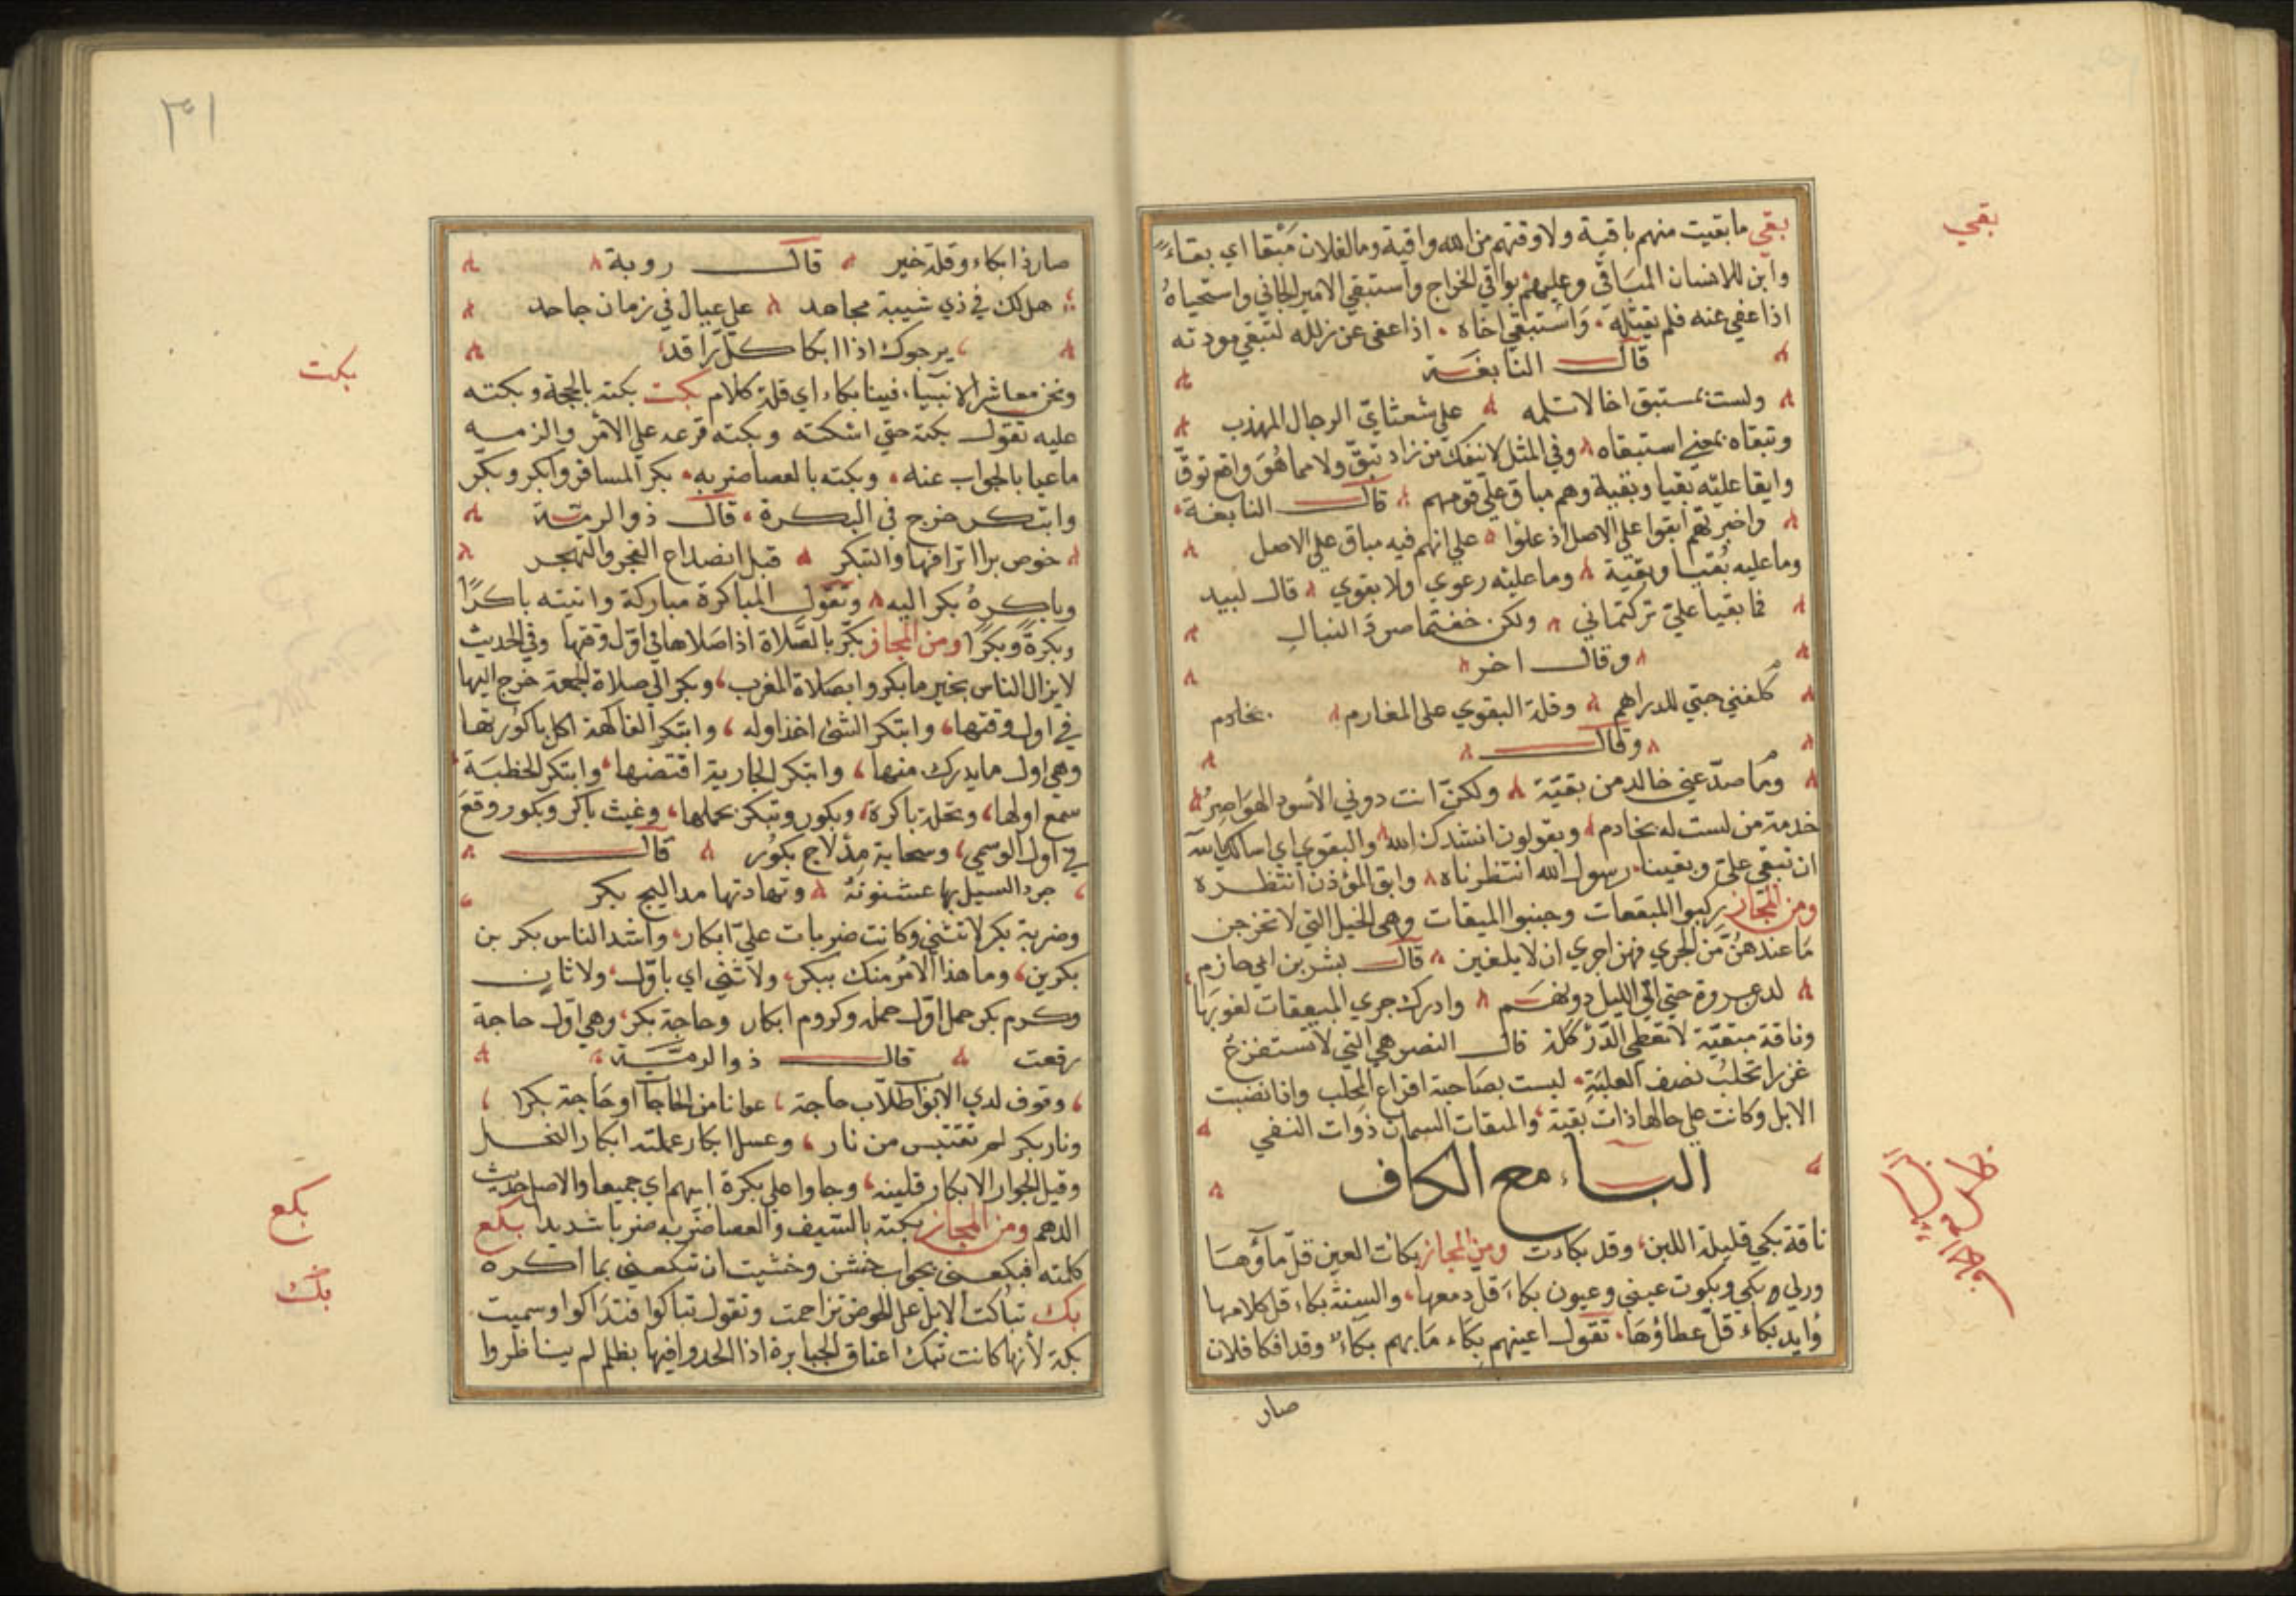 بقي
بقي ما بقيت منهم باقية ولا وقتهم من الله واقية وما لفلان مبقا اي بقاء
واين للانسان المباقي وعليهم بواقي الخراج واستبقي الامير الجاني واستحياه
اذا عفي عنه فلم يقتله وَاستبقي اخاه اذا عفي عن زلله لتبقي مودته
قال النابغة
ولست بمستبق اخا لا تلمه علي شعث اي الرجال المهذب
وتبقاه بمعني استبقاه وفي المثل لا ينفعك من زاد تبقّ ولا مما هُوَ واقع توقّ
وابقا عليه بقيا وبقية وهم مباق علي قومهم قال النابغة
واخبرتهم ابقوا علي الاصل اذ علوا علي انهم فيه مباق علي الاصل
وما عليه بُقيا وبقية وما عليه رعوي ولا بقوي قال لبيد
فما بقيا عليّ تركتماني ولكن خفتما صرد النبال
وقال اخر
كلفني حبي للدراهم وقلة البقوي علي المغارم بخادم
وقال
وما صدّ عني خالد من بقيّة ولكن انت دوني الأسود الهَوَاصِرُ
خدمة من لست له بخادم ويقولون انشدك الله والبقوي اي اسالك بالله
ان تبقي علي وبقينا رسول الله انتظرناه وابق المؤذن انتظره
ومن المجاز ركبوا المبقعات وجنبوا المبقات وهي الخيل التي لا تخرجن
مَا عندهنّ من الجري فهن اجري ان لا يلغبن قال بشر بن ابي حازم
لدعروة حتي الي الليل دونهم وادرك جري المبقعات لغوبها
وناقة مبقيّة لا تعطي الدَّرّ كله قال النضر هي التي لا تستفرغ
غزرا تحلبُ نصف العلبَةِ ليست بصَاحبة افراع المحلب واذا نضبت
الابل وكانت علي حالها ذات بقية والمبقات السمان ذوات النقي
الباء مع الكاف
ناقة بكي قليلة اللبن وقد بكادت ومن المجاز بكات العين قلّ ماؤهَا
وبكوت عيني وعيون بكاء قل دمعها والسنة بكاء قل كلامها
وايد بكاء قلّ عطاؤهَا تقول اعينهم بكاء مَا بهم بكاء وقد افكا فلان
صار
٣١
صار ذا بكاء وقلة خير قال روبة
هل لك في ذي شيبة مجاهد علي عيال في زمان جاحد
يرجوك اذا ابكا كلّ رَاقد
ونحن معاشر الانبياء فينا بكاء اي قلة كلام بكت بكته بالحجة وبكته
بكت
عليه تقول بكته حتي اسكته وبكته قرعه علي الامر والزمه
ما عيا بالجواب عنه وبكته بالعصا ضربه بكر المسافر وابكر وبكر
وابتكر خرج في البكرة قال ذو الرمّة
خوص برا اترافها والتبكر قبل انصداع الفجر والتهجر
وباكرهُ بكر اليه وتقول المباكرة مباركة واتيته باكرًا
وبكرةً وبكرًا ومن المجاز بكّر بالصّلاة اذا صَلاها في اوّل وقتها وفي الحديث
لا يزال الناس بخير ما بكروا بصلاة المغرب وبكر الي صلاة الجمعة خرج اليها
في اول وقتها وابتكر الشئ اخذ اوله وابتكر الفاكهة اكل باكورتها
وهي اول ما يدرك منها وابتكر الجارية اقتضها وابتكر الخطبَة
سمع اولها ونخلة باكرة وبكور وتبكر بحملها وغيث باكر وبكور وقع
في اول الوسمي وسحابة مدلاج بكور قال
جرد السيل بها عشنونهُ وتهادتها مداليج بكر
وضربة بكر لا تثني وكانت ضربات عليّ ابكار واشد الناس بكر بن
بكرين وما هذا الامر منك ببكر ولا ثني اي باوّل ولا ثان
وكرم بكر حمل اوّل حمله وكروم ابكار وحاجة بكر وهي اوّل حاجة
رفعت قال ذو الرمّة
وقوف لدي الابواب طلّاب حاجة عوانا من الحاجات او حَاجة بكرا
ونار بكر لم تقتبس من نار وعسل ابكار عملته ابكار النحل
وقيل الجوار الابكار قلينه وجاوا علي بكرة ابيهم اي جميعا والاصل حديث
الدهر ومن المجاز بكته بالسّيف والعصا ضربه ضربا شديدا بكع
بكع
كلمته فبكعني بجواب خشن وخشيت ان تبكعني بما اكره
بك تباكت الابل علي الحوض تزاحمت وتقول تباكوا فتداكوا وسميت
بك
بكة لأنها كانت تبك اعناق الجبابرة اذا الحدوا فيها بظلم لم يناظروا